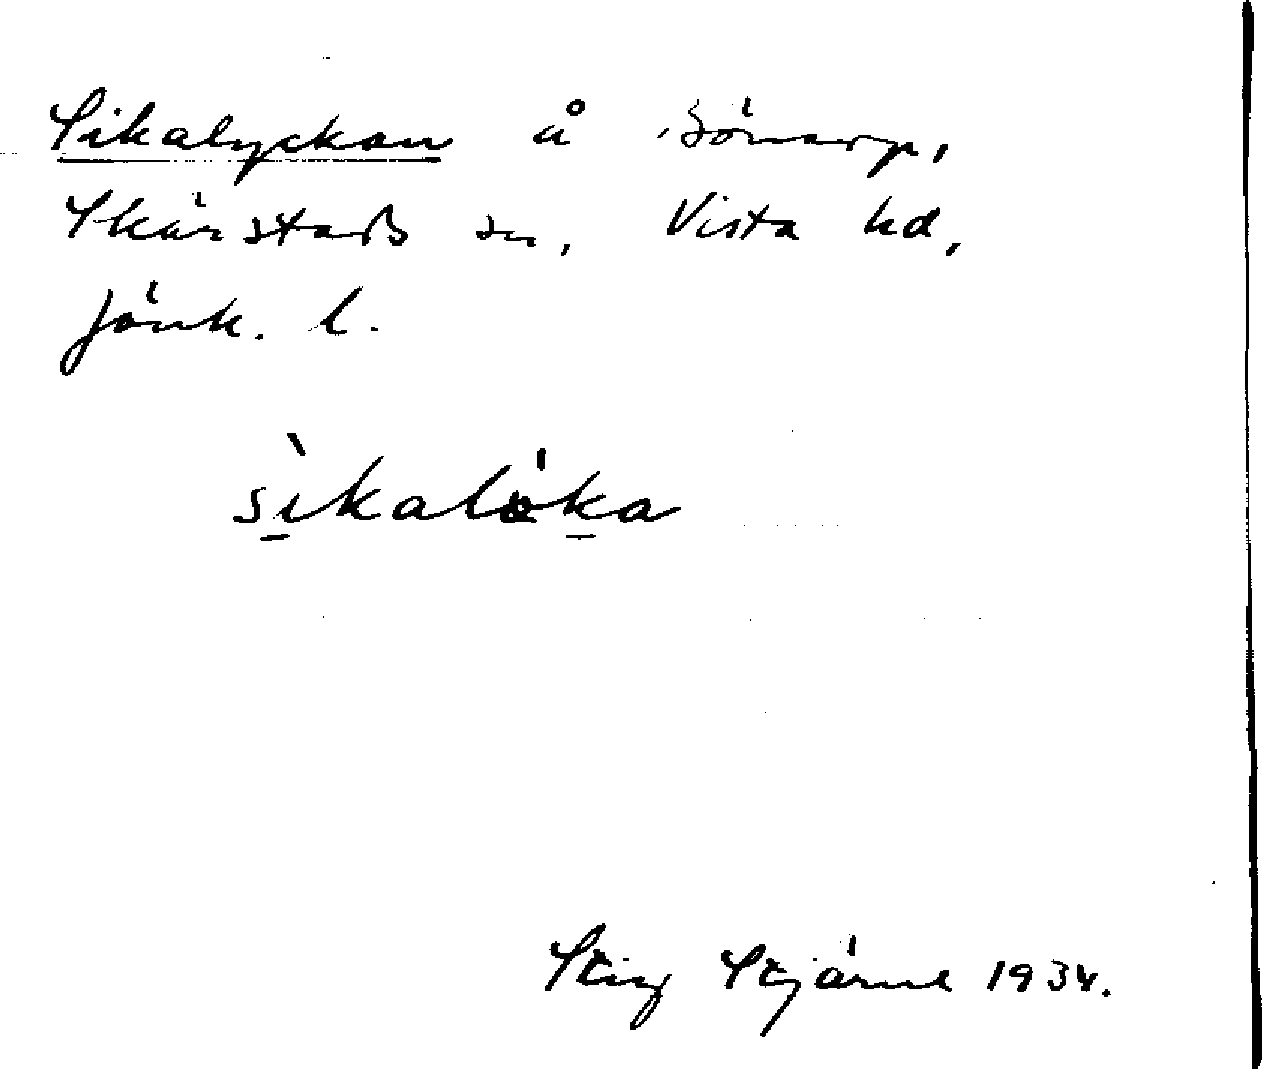 Sikalyckan å Bönarp,
Skärstads sn, Vista hd,
Jönk. l.
sìkalöka
Stig Stjärne 1934.